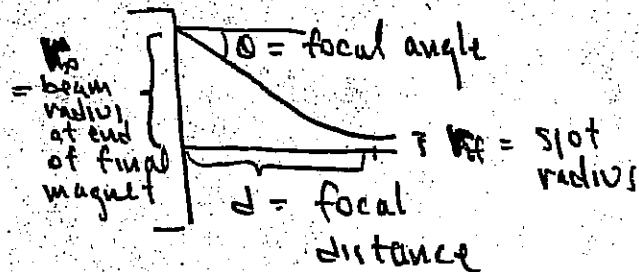 θ = focal angle
r₀
= beam
radius
at end
of final
magnet
r_f = spot
radius
d = focal
distance